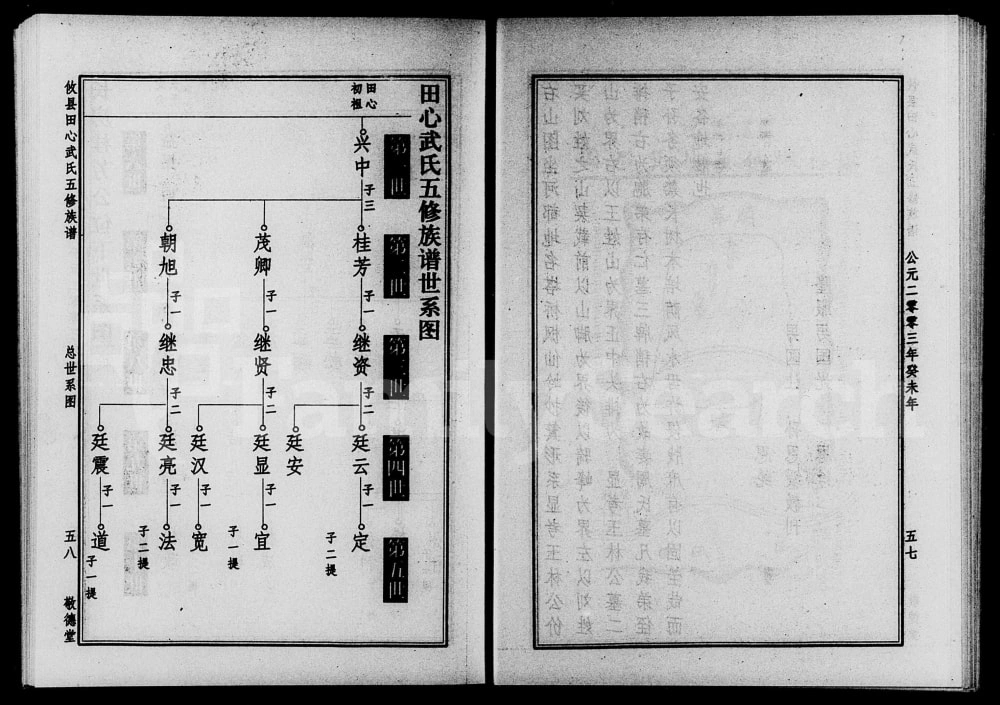 公元二零零三年癸未年
五七
田心武氏五修族谱世系图
第一世
第二世
第三世
第四世
第五世
田心
初祖
兴中
子三
桂芳
子一
继资
子二
廷云
子一
定
子二提
廷安
茂卿
子一
继贤
子二
廷显
子一
宜
子一提
廷汉
子一
宽
朝旭
子一
继忠
子二
廷亮
子一
法
子二提
廷震
子一
道
子一提
攸县田心武氏五修族谱
总世系图
五八
敬德堂
FamilySearch